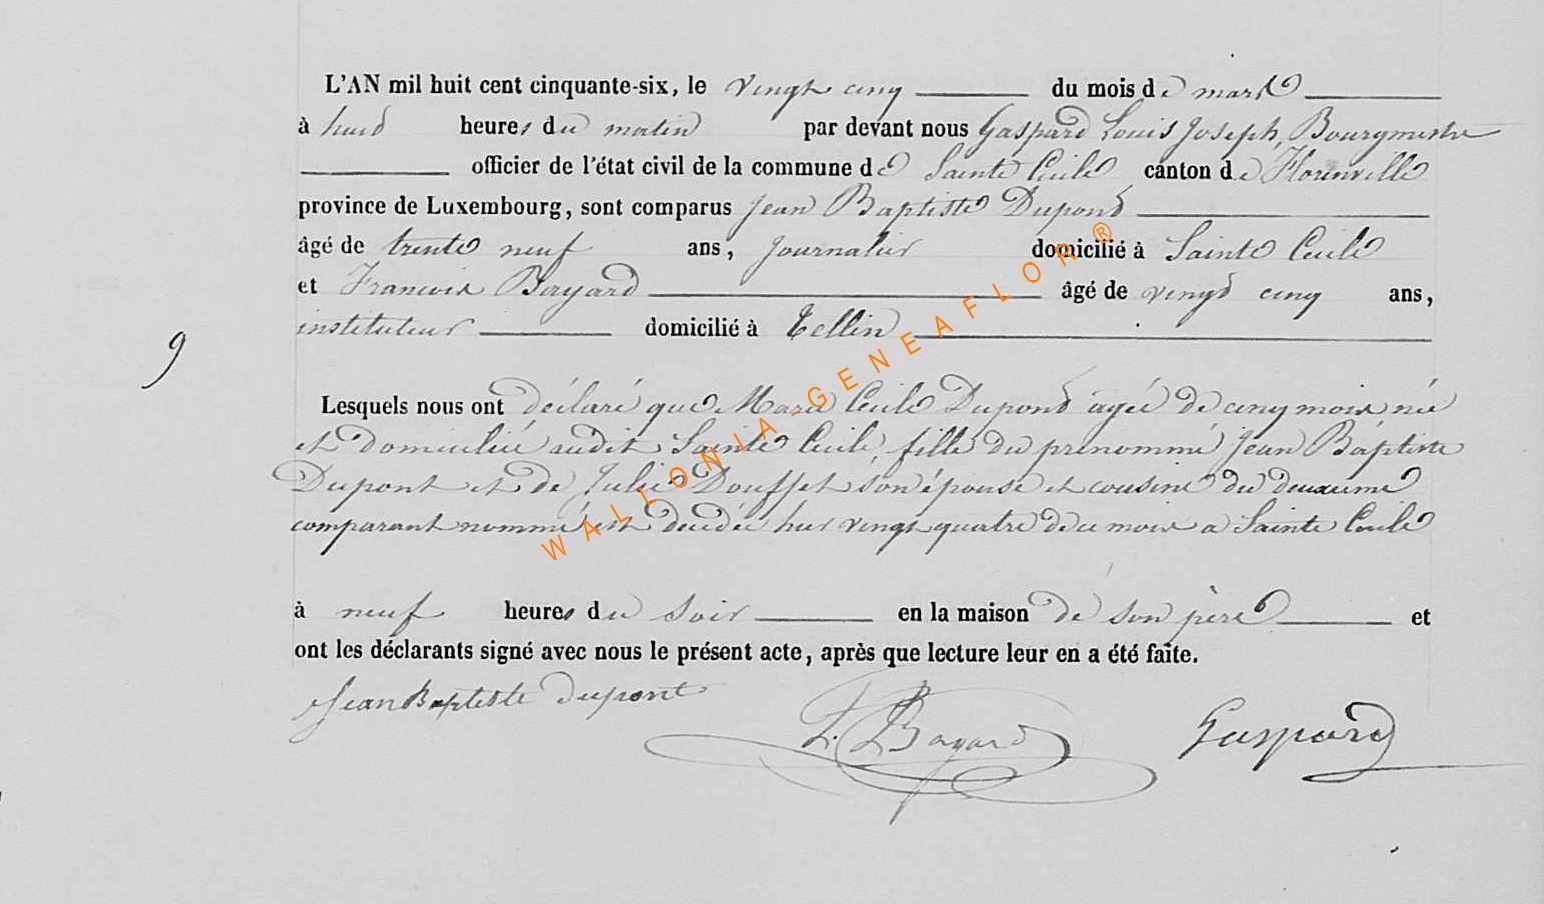 L'AN mil huit cent cinquante-six, le vingt cinq du mois de mars
à huit heures du matin par devant nous Gaspard Louis Joseph, Bourgmestre
officier de l'état civil de la commune de Sainte Cécile canton de Florenville
province de Luxembourg, sont comparus Jean Baptiste Dupond
âgé de trente neuf ans, journalier domicilié à Sainte Cécile
et Francois Bayard âgé de vingt cinq ans,
instituteur domicilié à Tellin
9
Lesquels nous ont déclaré que Marie Cécile Dupond agée de cinq mois née
et domiciliée audit Sainte Cécile, fille du prenommé Jean Baptiste
Dupont et de Julie Douffet son épouse et cousine du deuxieme
comparant nommé est décédée hier vingt quatre de ce mois a Sainte Cécile
à neuf heures du soir en la maison de son père et
ont les déclarants signé avec nous le présent acte, après que lecture leur en a été faite.
Jean Baptiste dupont F. Bayard Gaspard
WALLONIA-GENEAFLOR ®